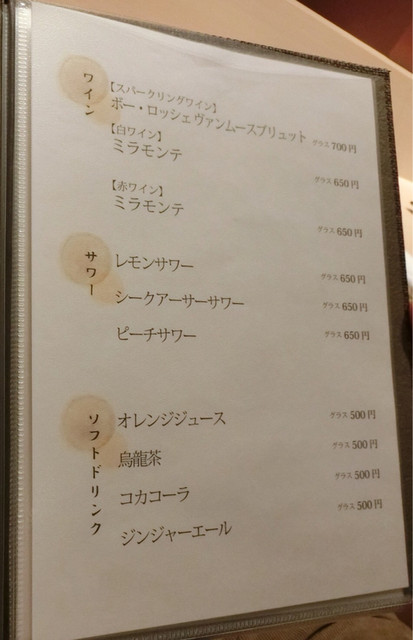 ワイン
【スパークリングワイン】
ボー・ロッシェ ヴァンムースブリュット グラス 700円
【白ワイン】
ミラモンテ グラス 650円
【赤ワイン】
ミラモンテ グラス 650円
サワー
レモンサワー グラス 650円
シークアーサーサワー グラス 650円
ピーチサワー グラス 650円
ソフトドリンク
オレンジジュース グラス 500円
烏龍茶 グラス 500円
コカコーラ グラス 500円
ジンジャーエール グラス 500円